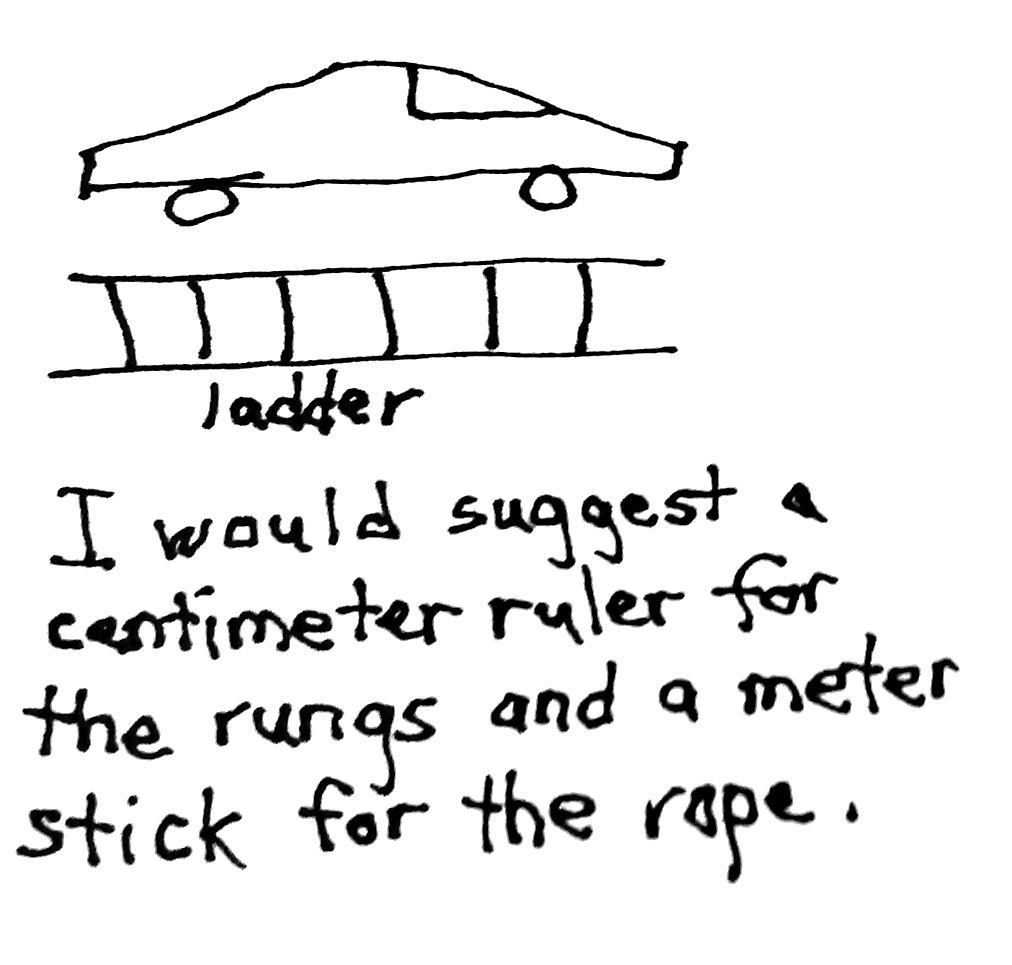 ladder
I would suggest a
centimeter ruler for
the rungs and a meter
stick for the rope.